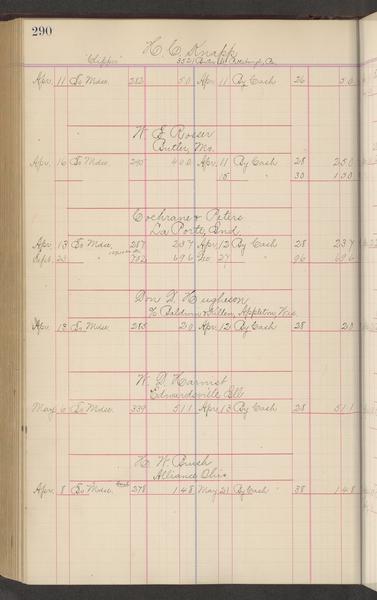 290
H. C. Knapp
"Clipper" 3521 Butler St. Pittsburgh, Pa.
Apr. 11 To Mdse. 282 50 Apr. 11 By Cash 26 50
W. E. Rosser
Butler, Mo.
Apr. 16 To Mdse. 295 400 Apr. 11 By Cash 28 250
15 30 150
Cochrane & Peters
La Porte, Ind.
Apr. 13 To Mdse. 287 237 Apr. 12 By Cash 28 237
Sept. 23 " 702 696 27 96 696
Don D.
% Baldwin, Appleton, Wis.
Apr. 13 To Mdse. 285 20 Apr. 12 By Cash 28 20
W. D. Harnist
Edwardsville Ill
May 6 To Mdse. 339 511 Apr. 13 By Cash 28 511
H. W. Brush
Alliance Ohio
Apr. 8 To Mdse. 278 148 May 21 By Cash 38 148